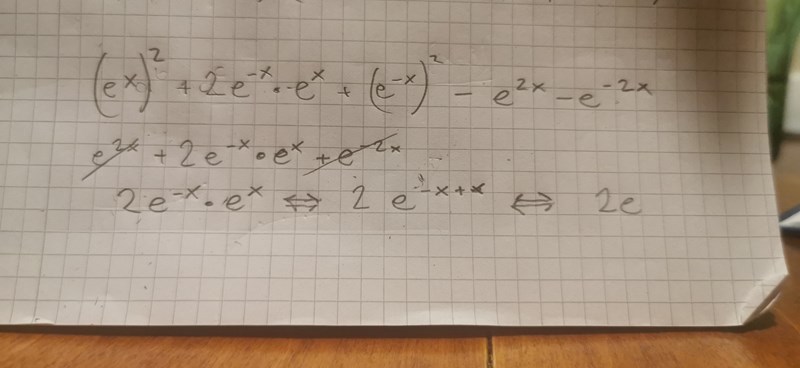 (e^x)^2 + 2e^-x · e^x + (e^-x)^2 - e^2x - e^-2x
e^2x + 2e^-x · e^x + e^-2x
2e^-x · e^x ⇔ 2 e^-x+x ⇔ 2e